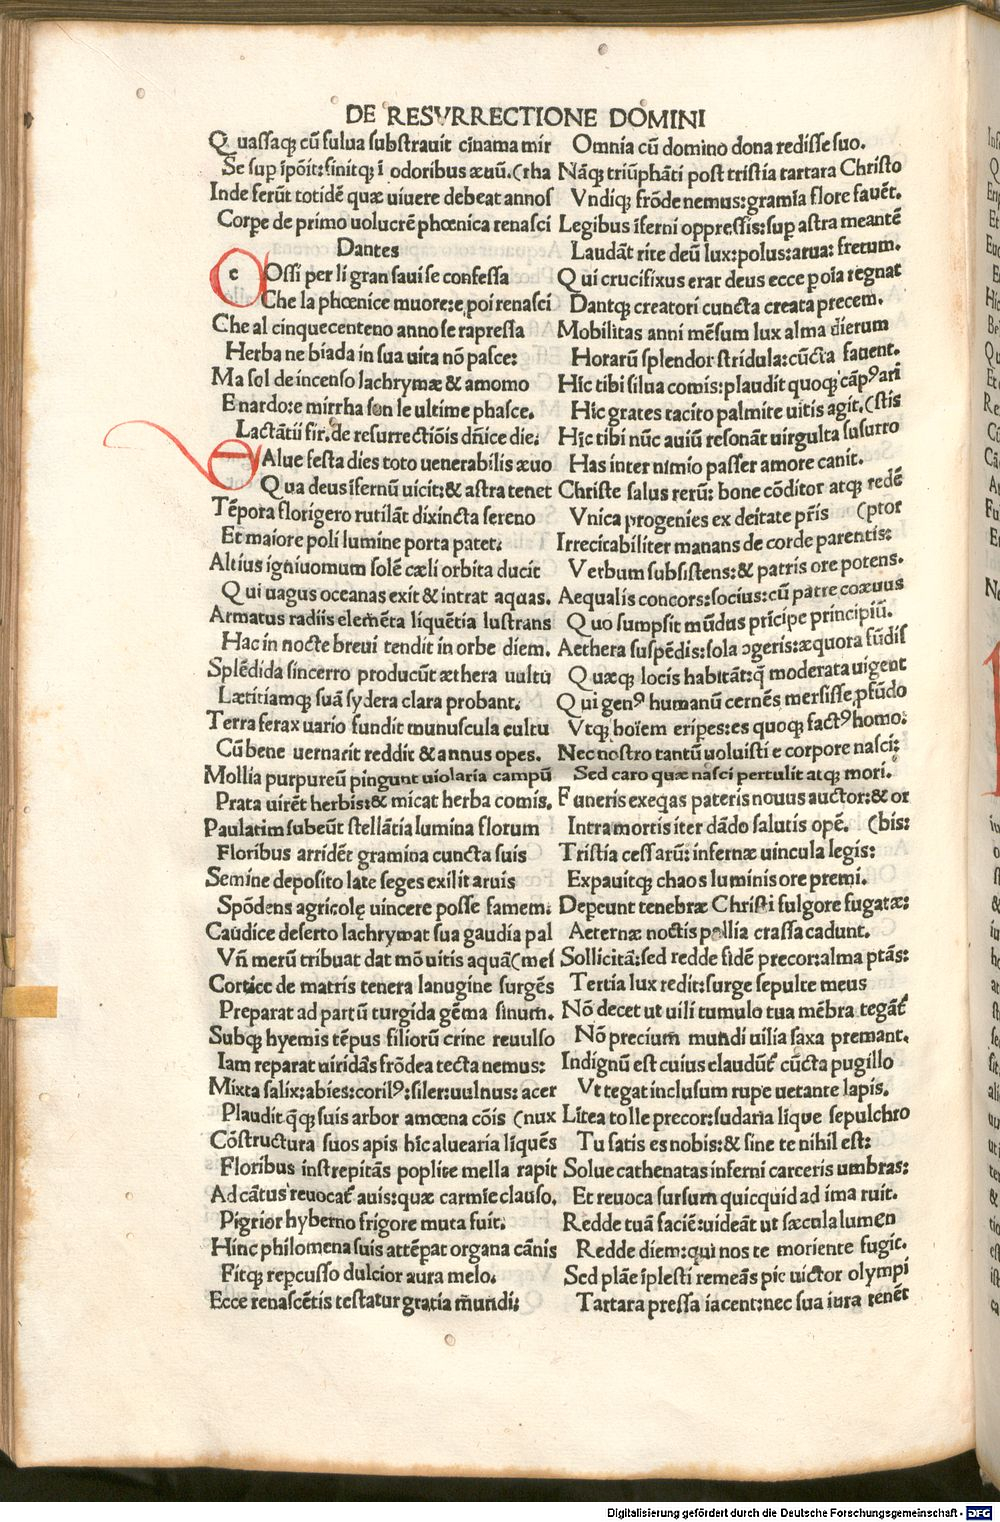 DE RESVRRECTIONE DOMINI
Quassaqꝫ cū fulua substrauit cīnama mir
Se sup īpōit: finitqꝫ ī odoribus æuū. (rha
Inde ferūt totidē quæ uiuere debeat annos
Corpe de primo uolucrē phœnica renasci
Dantes
e Ossi per li gran saui se confessa
Che la phœnice muore: e poi renasci
Che al cinquecenteno anno se rapressa
Herba ne biada in sua uita nō pasce:
Ma sol de incenso lachrymæ & amomo
E nardo: e mirrha son le ultime phasce.
Lactātii fir. de resurrectiōis dn̄ice die:
Alue festa dies toto uenerabilis æuo
Qua deus īfernū uicit: & astra tenet
Tēpora florigero rutilāt dixincta sereno
Et maiore poli lumine porta patet:
Altius igniuomum solē cæli orbita ducit
Qui uagus oceanas exit & intrat aquas.
Armatus radiis elemēta liquētia lustrans
Hac in nocte breui tendit in orbe diem.
Splēdida sincerro producūt æthera uultu
Lætitiamqꝫ suā sydera clara probant.
Terra ferax uario fundit munuscula cultu
Cū bene uernarit reddit & annus opes.
Mollia purpureū pingunt uiolaria campū
Prata uirēt herbis: & micat herba comis.
Paulatim subeūt stellātia lumina florum
Floribus arridēt gramina cuncta suis
Semine deposito late seges exilit aruis
Spōdens agricolę uincere posse famem:
Caudice deserto lachrymat sua gaudia pal
Vn̄ merū tribuat dat mō uitis aquā (mes
Cortice de matris tenera lanugine surgēs
Preparat ad partū turgida gēma sinum.
Subqꝫ hyemis tēpus filiorū crine reuulso
Iam reparat uiridās frōdea tecta nemus:
Mixta salix: abies: corilꝰ: siler: uulnus: acer
Plaudit q̄qꝫ suis arbor amœna cōis (nux
Cōstructura suos apis hīc aluearia līquēs
Floribus īnstrepitās poplite mella rapit
Ad cātus reuocat̄ auis: quæ carmīe clauso.
Pigrior hyberno frigore muta fuit.
Hinc philomena suis attēpat organa cānis
Fitqꝫ repcusso dulcior aura melo.
Ecce renascētis testatur gratia mūndi:
Omnia cū domino dona redisse suo.
Nāqꝫ triūphāti post tristia tartara Christo
Vndiqꝫ frōde nemus: gramīa flore fauēt.
Legibus īferni oppressis: sup astra meantē
Laudāt rite deū lux: polus: arua: fretum.
Qui crucifixus erat deus ecce poīa regnat
Dantqꝫ creatori cuncta creata precem.
Mobilitas anni mēsum lux alma dierum
Horarū splendor stridula: cūcta fauent.
Hīc tibi silua comis: plaudit quoqꝫ cāpꝰ ari
Hīc grates tacito palmite uitis agit. (stis
Hīc tibi nūc auiū resonāt uirgulta susurro
Has inter nimio passer amore canit.
Christe salus rerū: bone cōditor atqꝫ redē
Vnica progenies ex deitate pr̄is (ptor
Irrecitabiliter manans de corde parentis:
Verbum subsistens: & patris ore potens.
Aequalis concors: socius: cū patre coæuus
Quo sumpsit mūdus prīcipe principiū.
Aethera suspēdis: sola ɔgeris: æquora fūdis
Quæqꝫ locis habitāt: q̄ moderata uigent
Qui genꝰ humanū cernēs mersisse pfūdo
Vtqꝫ hoīem eripes: es quoqꝫ factꝰ homo:
Nec nostro tantū uoluisti e corpore nasci:
Sed caro quæ nasci pertulit atqꝫ mori.
Funeris exeqas pateris nouus auctor: & or
Intra mortis iter dādo salutis opē. (bis:
Tristia cessarū: infernæ uincula legis:
Expauitqꝫ chaos luminis ore premi.
Depeunt tenebræ Christi fulgore fugatæ:
Aeternæ noctis pallia crassa cadunt.
Sollicitā: sed redde fidē precor: alma ptās:
Tertia lux redit: surge sepulte meus
Nō decet ut uili tumulo tua mēbra tegāt̄
Nō precium mundi uilia saxa premant.
Indignū est cuius claudūt̄ cūcta pugillo
Vt tegat inclusum rupe uetante lapis.
Lītea tolle precor: sudaria līque sepulchro
Tu satis es nobis: & sine te nihil est:
Solue cathenatas inferni carceris umbras:
Et reuoca sursum quicquid ad ima ruit.
Redde tuā faciē: uideāt ut sæcula lumen
Redde diem: qui nos te moriente fugit.
Sed plāe īplesti remeās pie uictor olympi
Tartara pressa iacent: nec sua iura tenēt
Digitalisierung gefördert durch die Deutsche Forschungsgemeinschaft - DFG